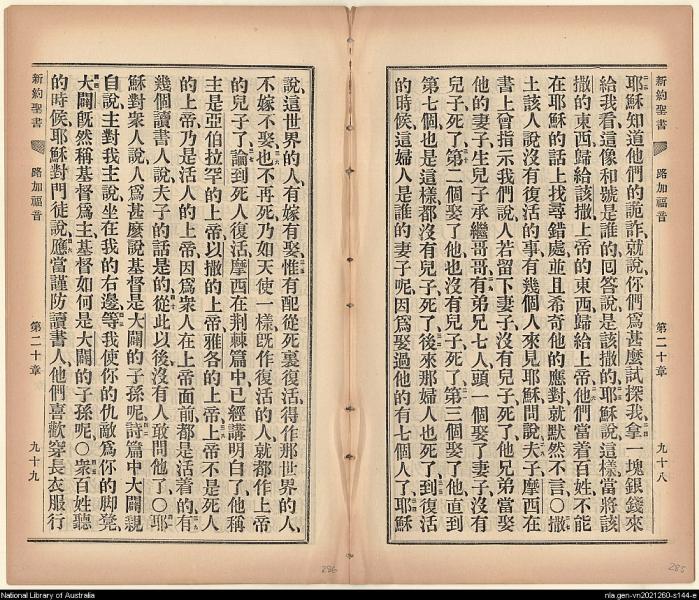 新約聖書 路加福音 第二十章 九十八
耶穌知道他們的詭詐、就說、你們爲甚麽試探我、拿一塊銀錢來
給我看、這像和號是誰的、回答說、是該撒的、耶穌說、這樣、當將該
撒的東西、歸給該撒、上帝的東西、歸給上帝、他們當着百姓、不能
在耶穌的話上找尋錯處、並且希奇他的應對、就默然不言、〇撒
土該人說沒有復活的事、有幾個人來見耶穌、問說、夫子、摩西在
書上曾指示我們、說、人若留下妻子、沒有兒子死了、他兄弟當娶
他的妻子、生兒子承繼哥哥、有弟兄七人、頭一個娶了妻子、沒有
兒子死了、第二個娶了他、也沒有兒子死了、第三個娶了他、直到
第七個、也是這樣、都沒有兒子死了、後來那婦人也死了、到復活
的時候、這婦人是誰的妻子呢、因爲娶過他的有七個人了、耶穌
說、這世界的人、有嫁有娶、惟有配從死裏復活、得作那世界的人、
不嫁不娶、也不再死、乃如天使一樣、旣作復活的人、就都作上帝
的兒子了、論到死人復活、摩西在荆棘篇中、已經講明白了、他稱
主是亞伯拉罕的上帝、以撒的上帝、雅各的上帝、上帝不是死人
的上帝、乃是活人的上帝、因爲衆人在上帝面前都是活着的、有
幾個讀書人說、夫子的話是的、從此以後、沒有人敢問他了、〇耶
穌對衆人說、人爲甚麽說基督是大闢的子孫呢、詩篇中大闢親
自說、主對我主說、坐在我的右邊、等我使你的仇敵爲你的脚凳、
大闢旣然稱基督爲主、基督如何是大闢的子孫呢、〇衆百姓聽
的時候、耶穌對門徒說、應當謹防讀書人、他們喜歡穿長衣服行
新約聖書 路加福音 第二十章 九十九
286
285
National Library of Australia
nla.gen-vn2021260-s144-e